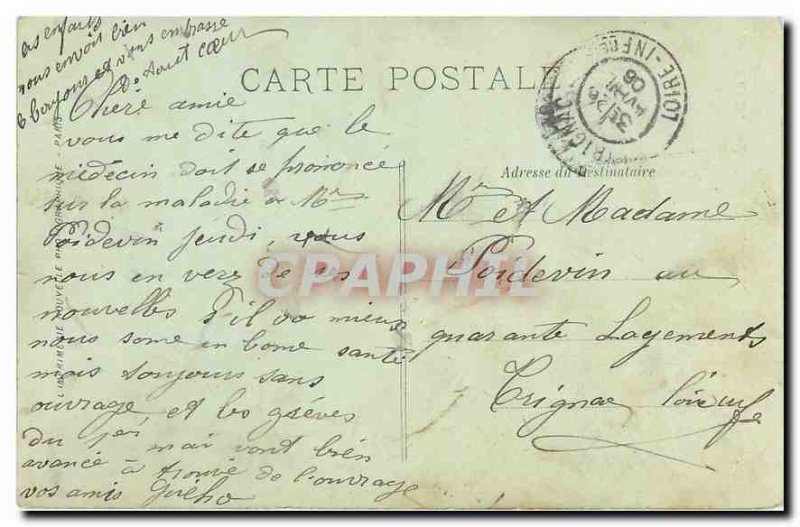 CARTE POSTALE
Adresse du Destinataire
Chère amie
vous me dite que le
médecin doit se prononcé
sur la maladie a Mr
Poidevin jeudi, vous
nous en verez de ses
nouvelles s'il va mieux
nous some en bone santé
mais toujours sans
ouvrage et les grèves
du 1er mai vont bien
avancé à trouvé de l'ouvrage
vos amis Guilho
les enfants
vous envoit bien
bonjour et vous embrasse
De tout cœur
Mr et Madame
Poidevin au
quarante Logements
Trignac Loire inf
TRIGNAC LOIRE-INFRE
3E 26
AVRIL
06
L'IMPRIMERIE NOUVELLE PHOTOGRAPHIQUE - PARIS
CPAPHIL